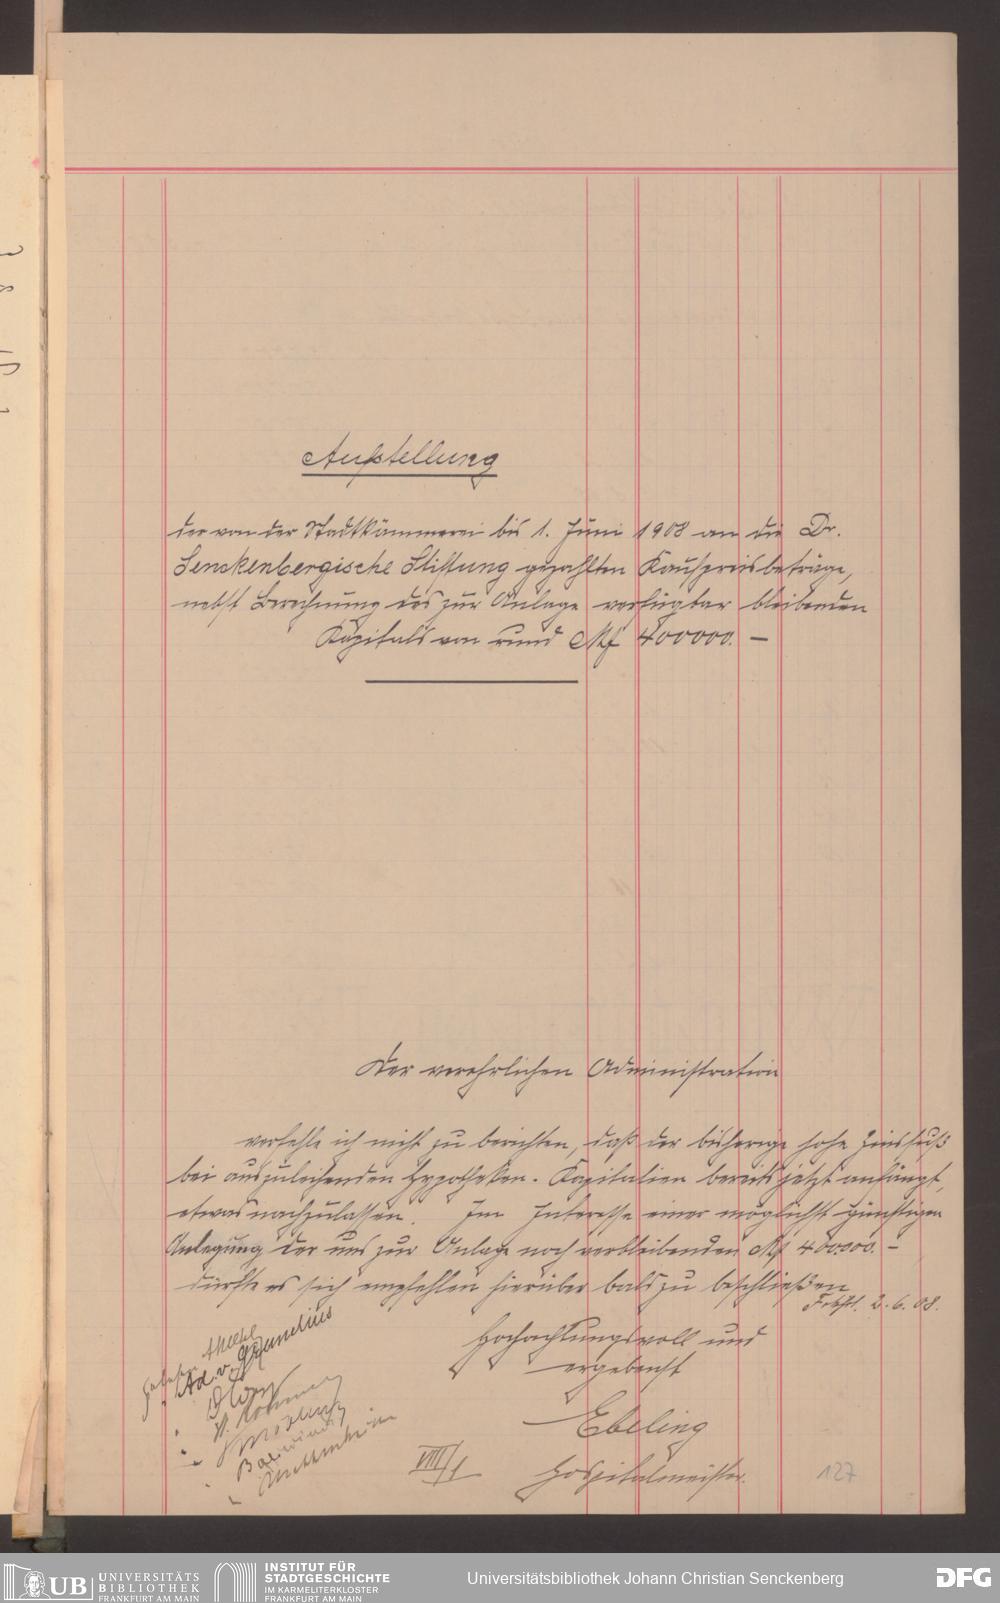 Aufstellung
der von der Stadtkämmerei bis 1. Juni 1908 an die Dr.
Senckenbergische Stiftung gezahlten Kaufpreisbeträge,
nebst Berechnung des zur Anlage verfügbar bleibenden
Kapitals von rund Mf 400000. —
Der verehrlichen Administration
verfehle ich nicht zu berichten, daß der bisherige hohe Zinsfuß
bei auszuleihenden Hypotheken-Kapitalien bereits jetzt anfängt,
etwas nachzulassen. Im Interesse einer möglichst günstigen
Anlegung der uns zur Anlage noch verbleibenden Mf 400.000. —
dürfte es sich empfehlen hierüber bald zu beschließen
Frkft. 2.6.08.
Hochachtungsvoll und
ergebenst
Ebeling
Hospitalmeister.
gelesen
" Ad. v. Grunelius
VIII/1
127
UB UNIVERSITÄTS
BIBLIOTHEK
FRANKFURT AM MAIN
INSTITUT FÜR
STADTGESCHICHTE
IM KARMELITERKLOSTER
FRANKFURT AM MAIN
Universitätsbibliothek Johann Christian Senckenberg
DFG